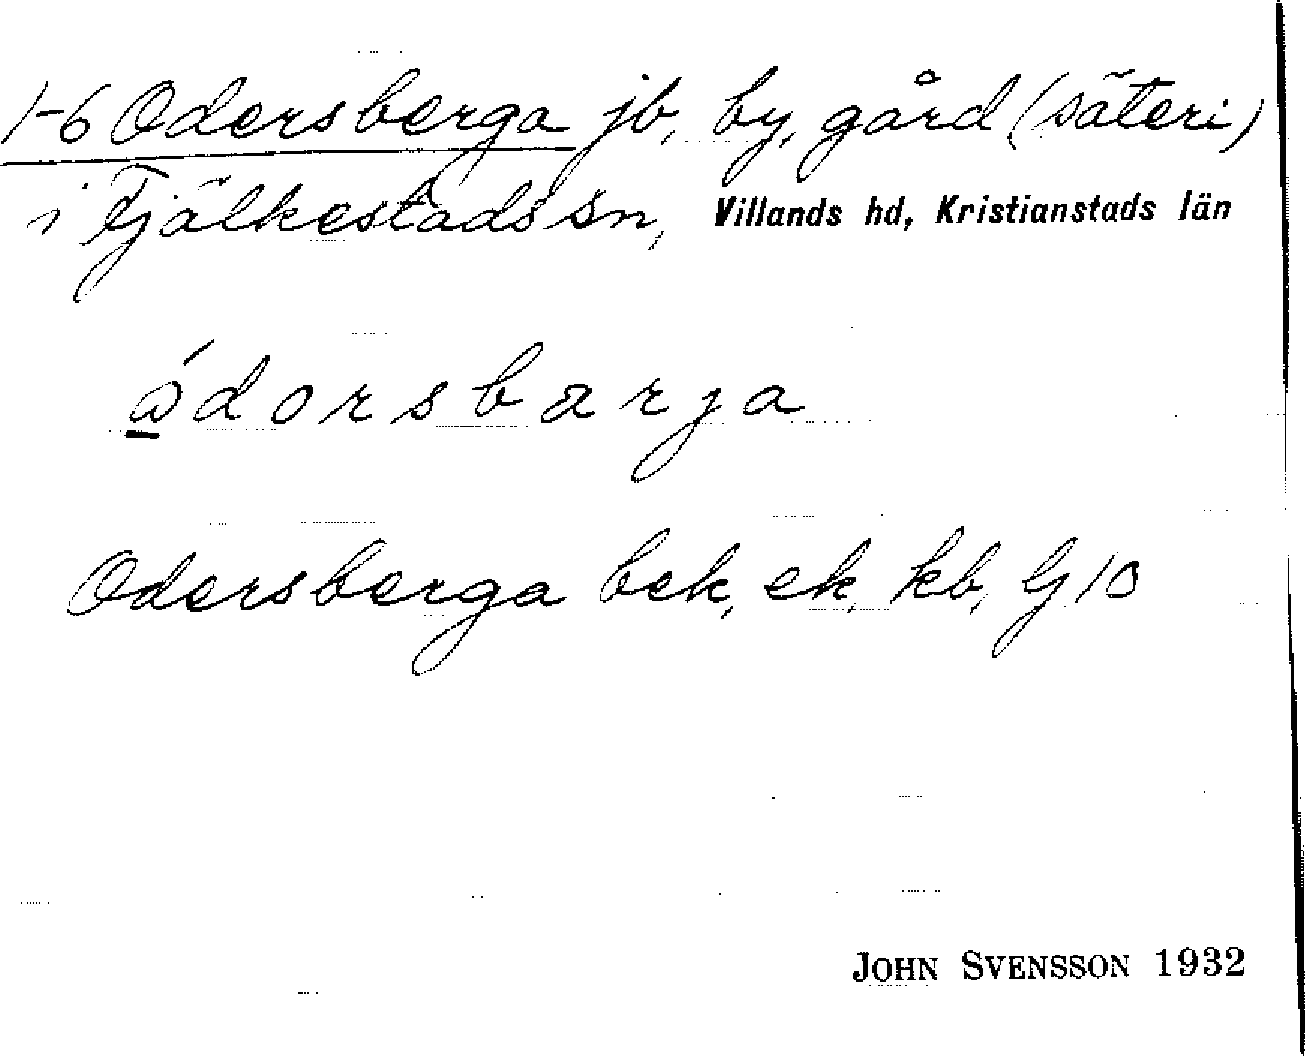 1-6 Odersberga jb, by, gård (säteri)
i Fjälkestads sn, Villands hd, Kristianstads län
ó̱dorsbarja
Odersberga bek, ek, kb, G 10
JOHN SVENSSON 1932